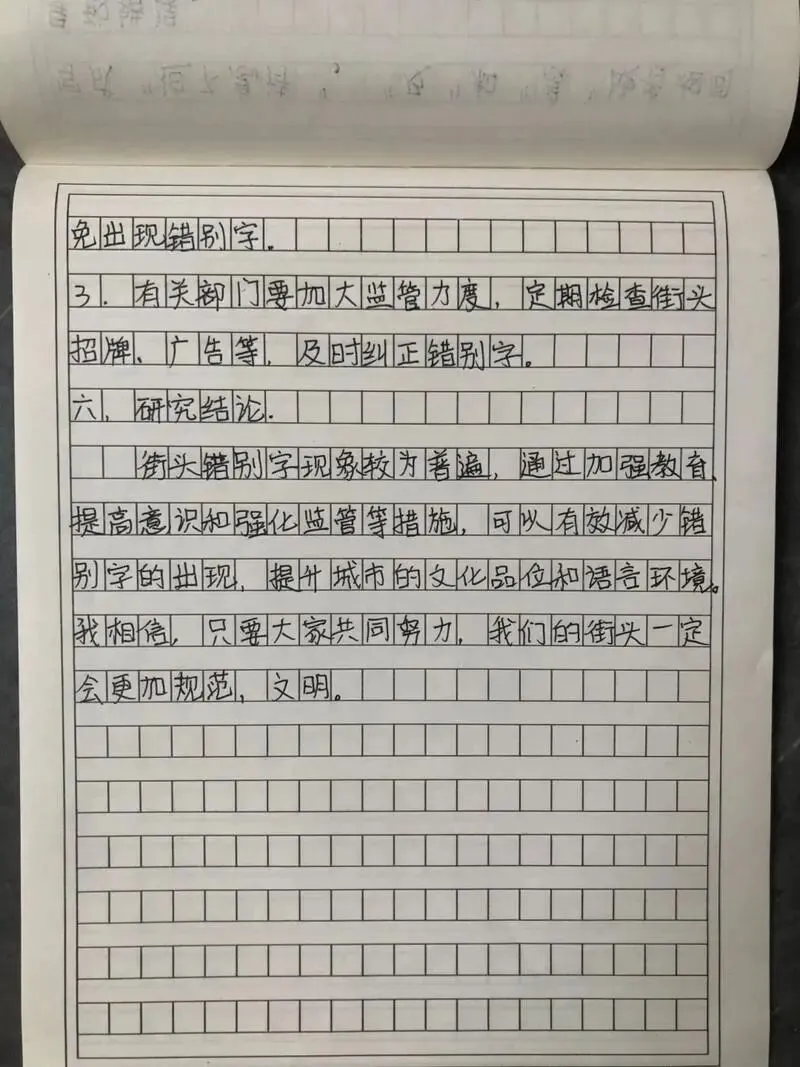 免出现错别字.
3.有关部门要加大监管力度,定期检查街头
招牌、广告等,及时纠正错别字。
六、研究结论.
街头错别字现象较为普遍,通过加强教育、
提高意识和强化监管等措施,可以有效减少错
别字的出现,提升城市的文化品位和语言环境。
我相信,只要大家共同努力,我们的街头一定
会更加规范、文明。